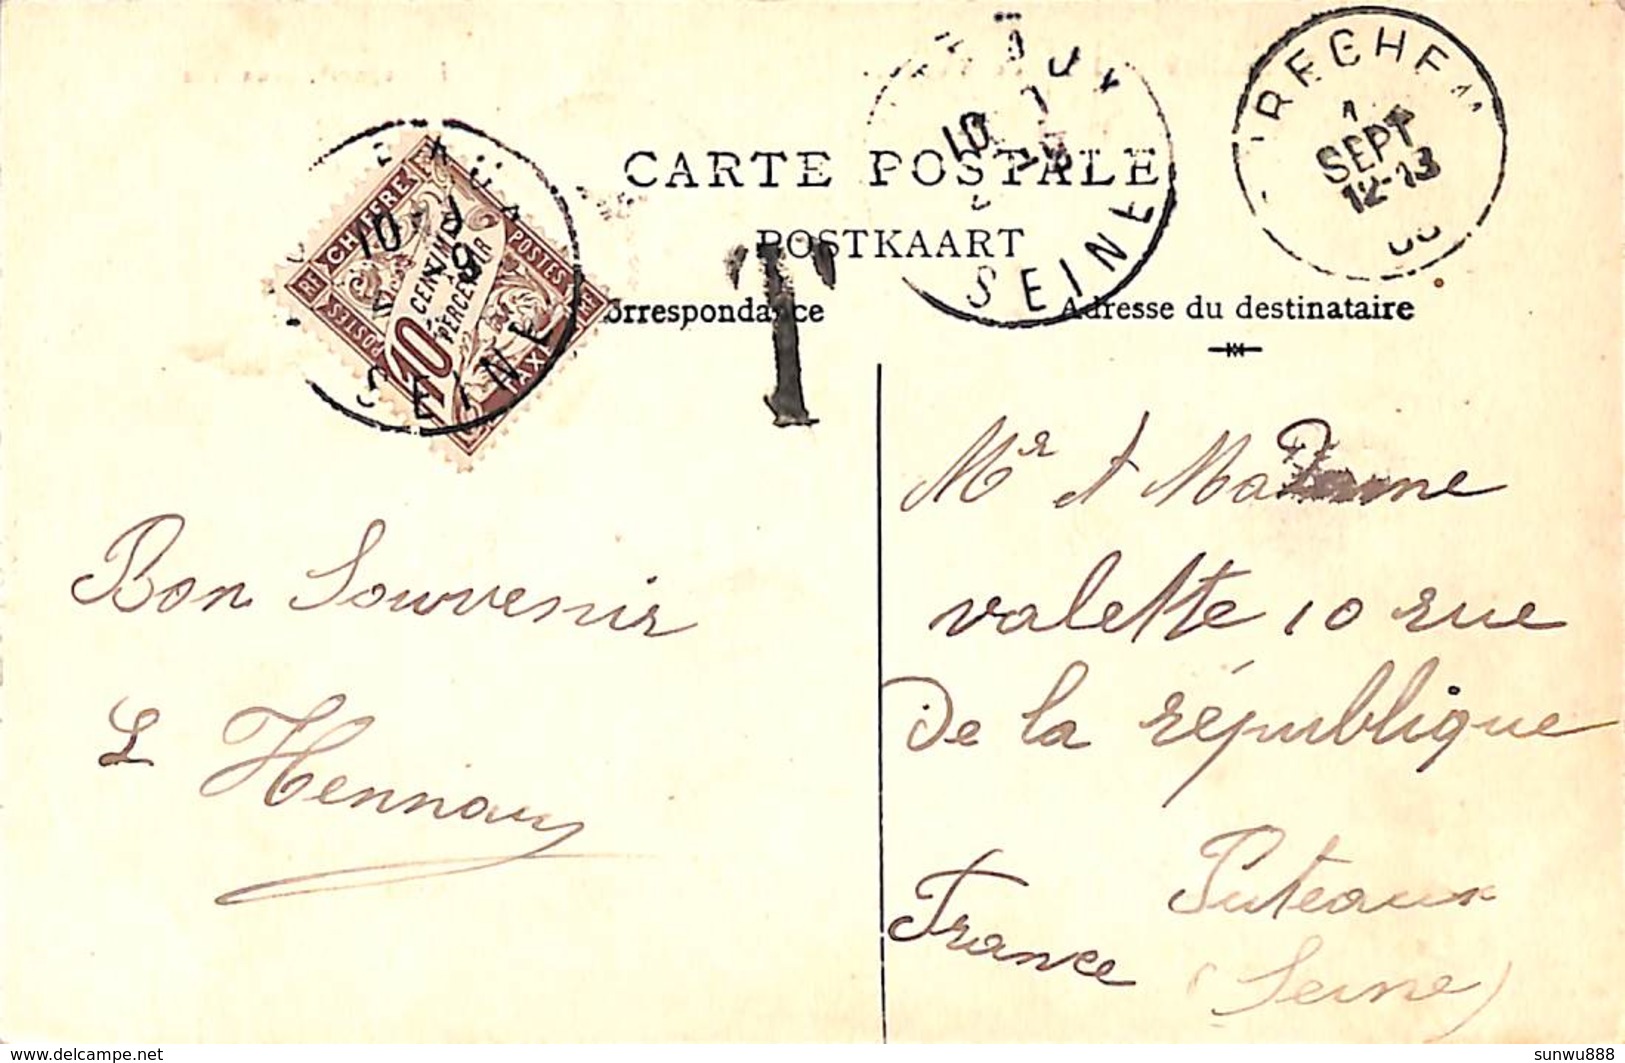 CARTE POSTALE
POSTKAART
orrespondance
Adresse du destinataire
T
RF CHIFFRE POSTES
10 CENTIMES
A PERCEVOIR
POSTES
SEINE
10
SEINE
SEPT
12-13
Bon Souvenir
L Hennau
Mr et Madame
valette 10 rue
De la république
Puteaux
France
(Seine)
delcampe.net
sunwu888